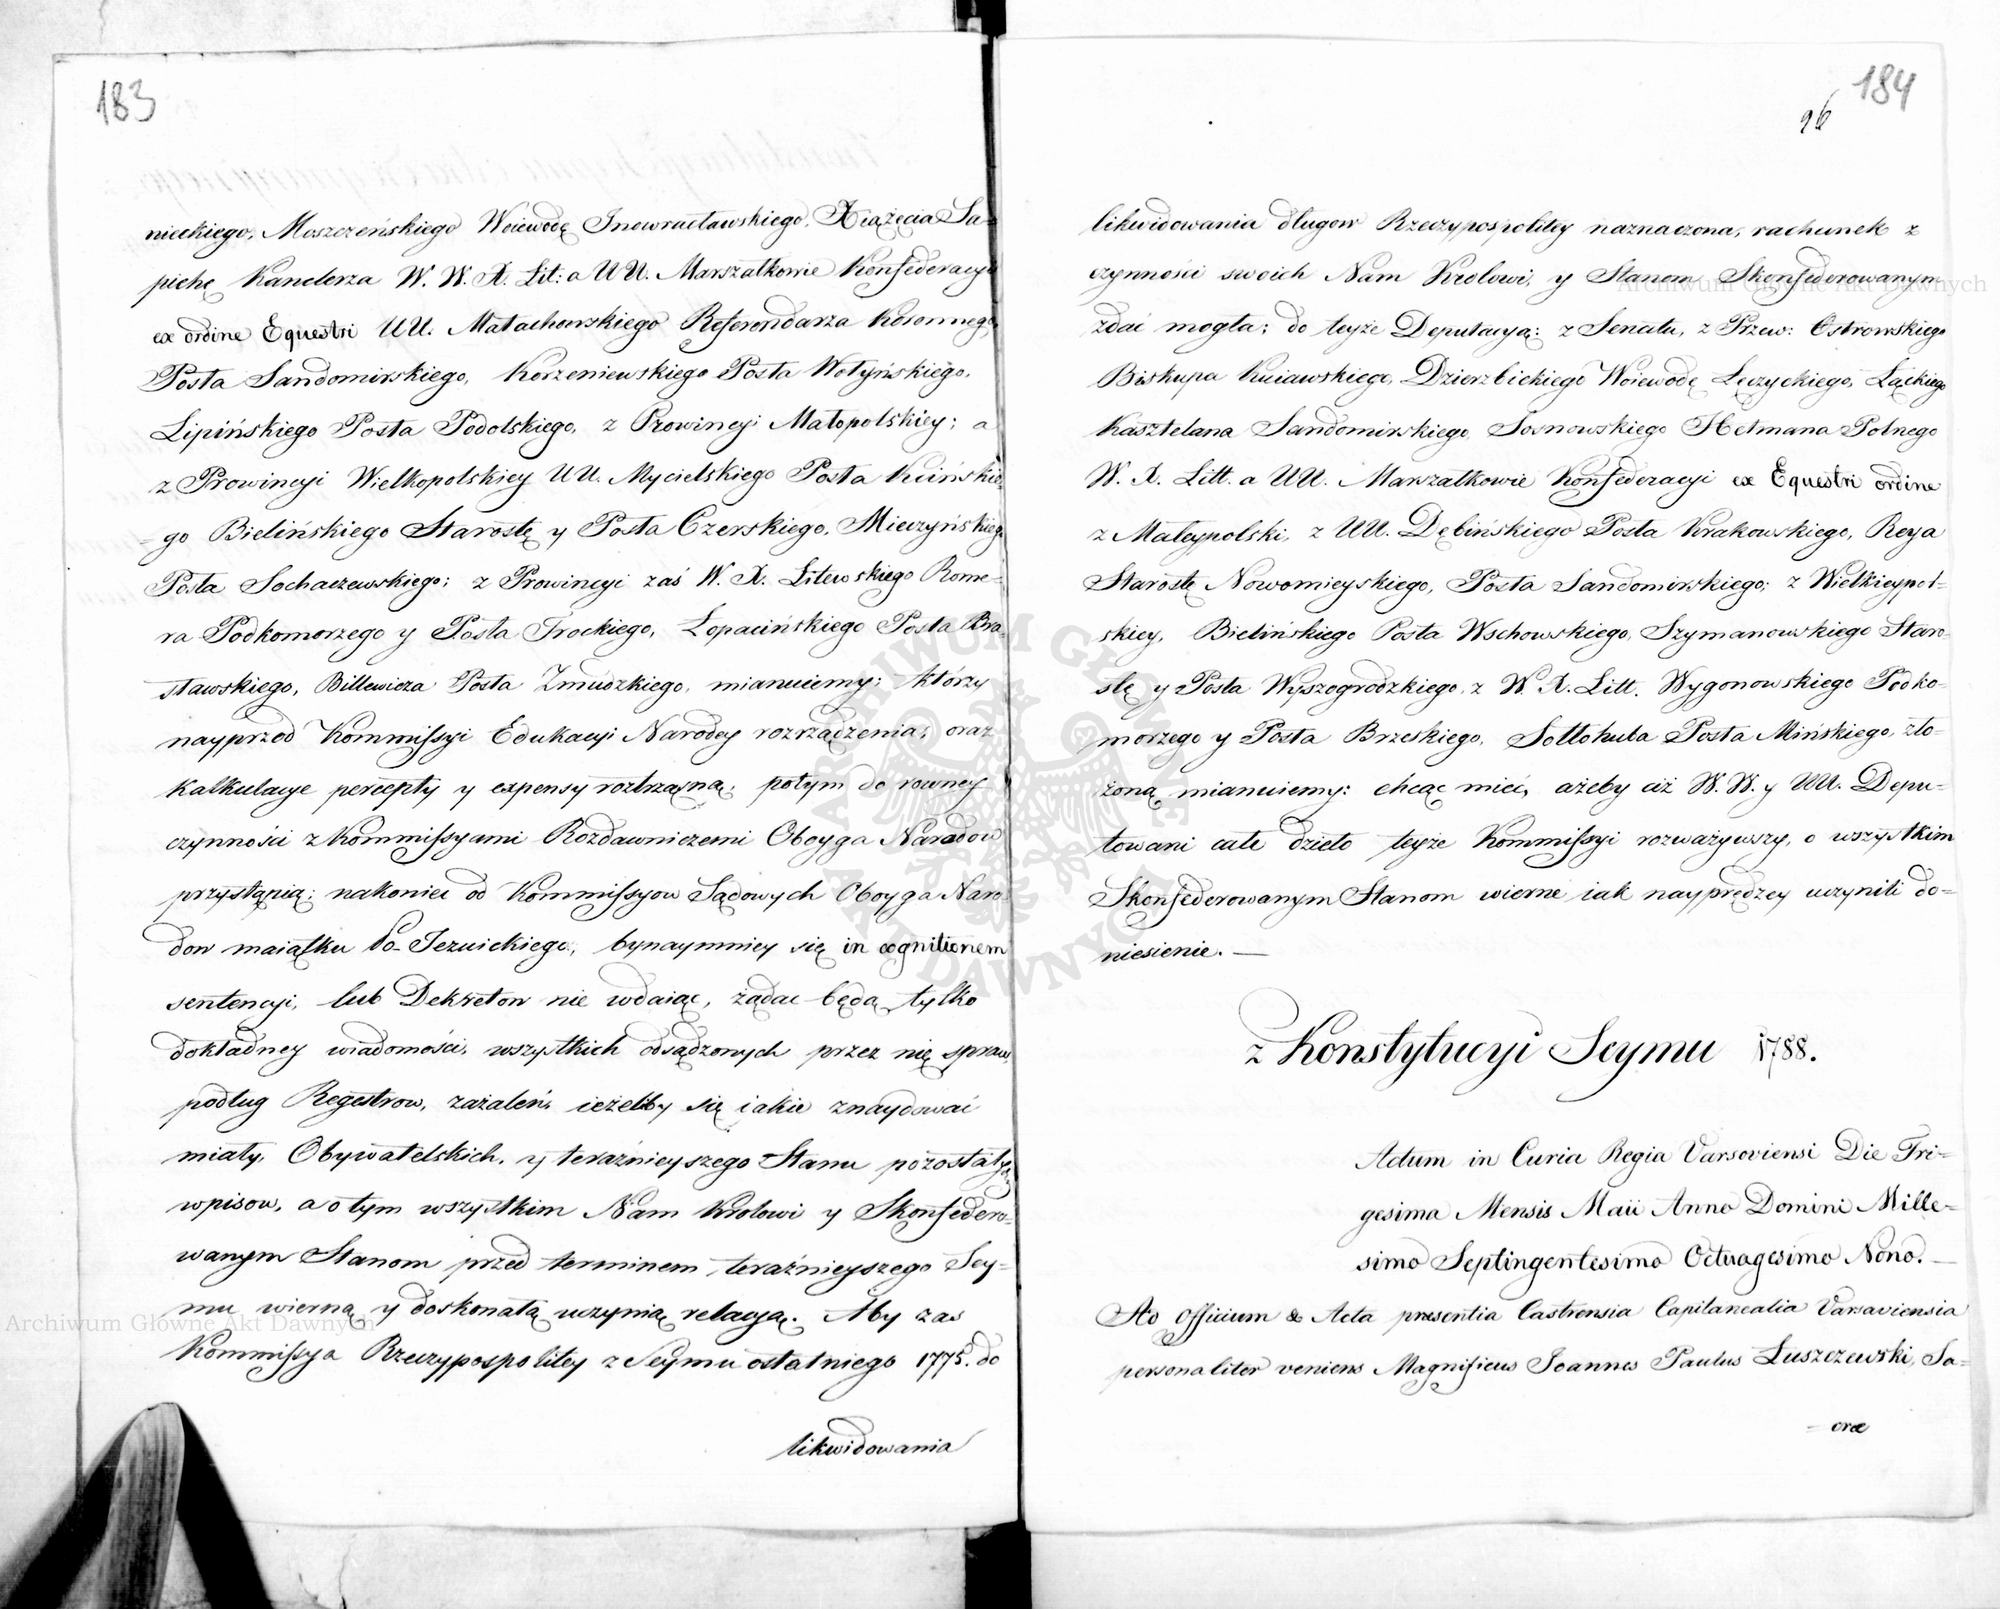 183
nieckiego, Moszczeńskiego Woiewodę Inowracławskiego, Xiążęcia Sa-
piehę Kanclerza W. W. X. Lit: a UU. Marszałkowie Konfederacyi
ex ordine Equestri UU. Małachowskiego Referendarza Koronnego,
Posła Sandomirskiego, Korzeniewskiego Posła Wołyńskiego,
Lipińskiego Posła Podolskiego, z Prowincyi Małopolskiey; a
z Prowincyi Wielkopolskiey UU. Mycielskiego Posła
go Bielińskiego Starostę y Posła Czerskiego, Mieczyńskiego
Posła Sochaczewskiego; z Prowincyi zaś W. X. Litewskiego Rome-
ra Podkomorzego y Posła Trockiego, Łopacińskiego Posła Bra-
sławskiego, Billewicza Posła Zmudzkiego, mianuiemy; którzy
nayprzod Kommissyi Edukacyi Narodey rozrządzenia, oraz
Kalkulacye percepty y expensy roztrząsną, potym do rowney
czynności z Kommissyami Rozdawniczemi Oboyga Narodow
przystąpią; nakoniec od Kommissyow Sądowych Oboyga Naro-
dow maiątku Po-Jezuickiego, bynaymniey się in cognitionem
sentencyi, lub Dekretow nie wdaiąc, żądać będą tylko
dokładney wiadomości, wszystkich odsądzonych przez nię spraw,
podług Regestrow, zażaleń, ieżeliby się iakie znaydować
miały, Obywatelskich, y teraźnieyszego Stanu pozostałych
wpisow, a o tym wszystkim Nam Krolowi y Skonfedero-
wanym Stanom przed terminem teraźnieyszego Sey-
mu wierną y doskonałą uczynią relacyą. Aby zaś
Kommissya Rzeczypospolitey z Seymu ostatniego 1775. do
likwidowania
184
96
likwidowania długow Rzeczypospolitey naznaczona, rachunek z
czynności swoich Nam Krolowi, y Stanom Skonfederowanym
zdać mogła; do teyże Deputacyą: z Senatu, z Przew: Ostrowskiego
Biskupa Kuiawskiego, Dzierzbickiego Woiewodę Łęczyckiego, Łąckiego
Kasztelana Sandomirskiego, Sosnowskiego Hetmana Polnego
W. X. Litt. a UU. Marszałkowie Konfederacyi ex Equestri ordine
z Małeypolski, z UU. Dębińskiego Posła Krakowskiego, Reya
Starostę Nowomieyskiego, Posła Sandomirskiego; z Wielkieypol-
skiey, Bielińskiego Posła Wschowskiego, Szymanowskiego Staro-
stę y Posła Wyszogrodzkiego, z W. X. Litt. Wygonowskiego Podko-
morzego y Posła Brzeskiego, Sołłohuba Posła Mińskiego, zło-
żoną mianuiemy: chcąc mieć, ażeby ciż W. W. y UU. Depu-
towani całe dzieło teyże Kommissyi rozważywszy, o wszystkim
Skonfederowanym Stanom wierne iak nayprędzey uczynili do-
niesienie. —
z Konstytucyi Seymu 1788.
Actum in Curia Regia Varsoviensi Die Tri-
gesima Mensis Maii Anno Domini Mille-
simo Septingentesimo Octuagesimo Nono. —
Ad Officium & Acta præsentia Castrensia Capitanealia Varsaviensia
personaliter veniens Magnificus Joannes Paulus Łuszczewski, Sa-
cræ
Archiwum Główne Akt Dawnych
Archiwum Główne Akt Dawnych
ARCHIWUM GŁÓWNE AKT DAWNYCH